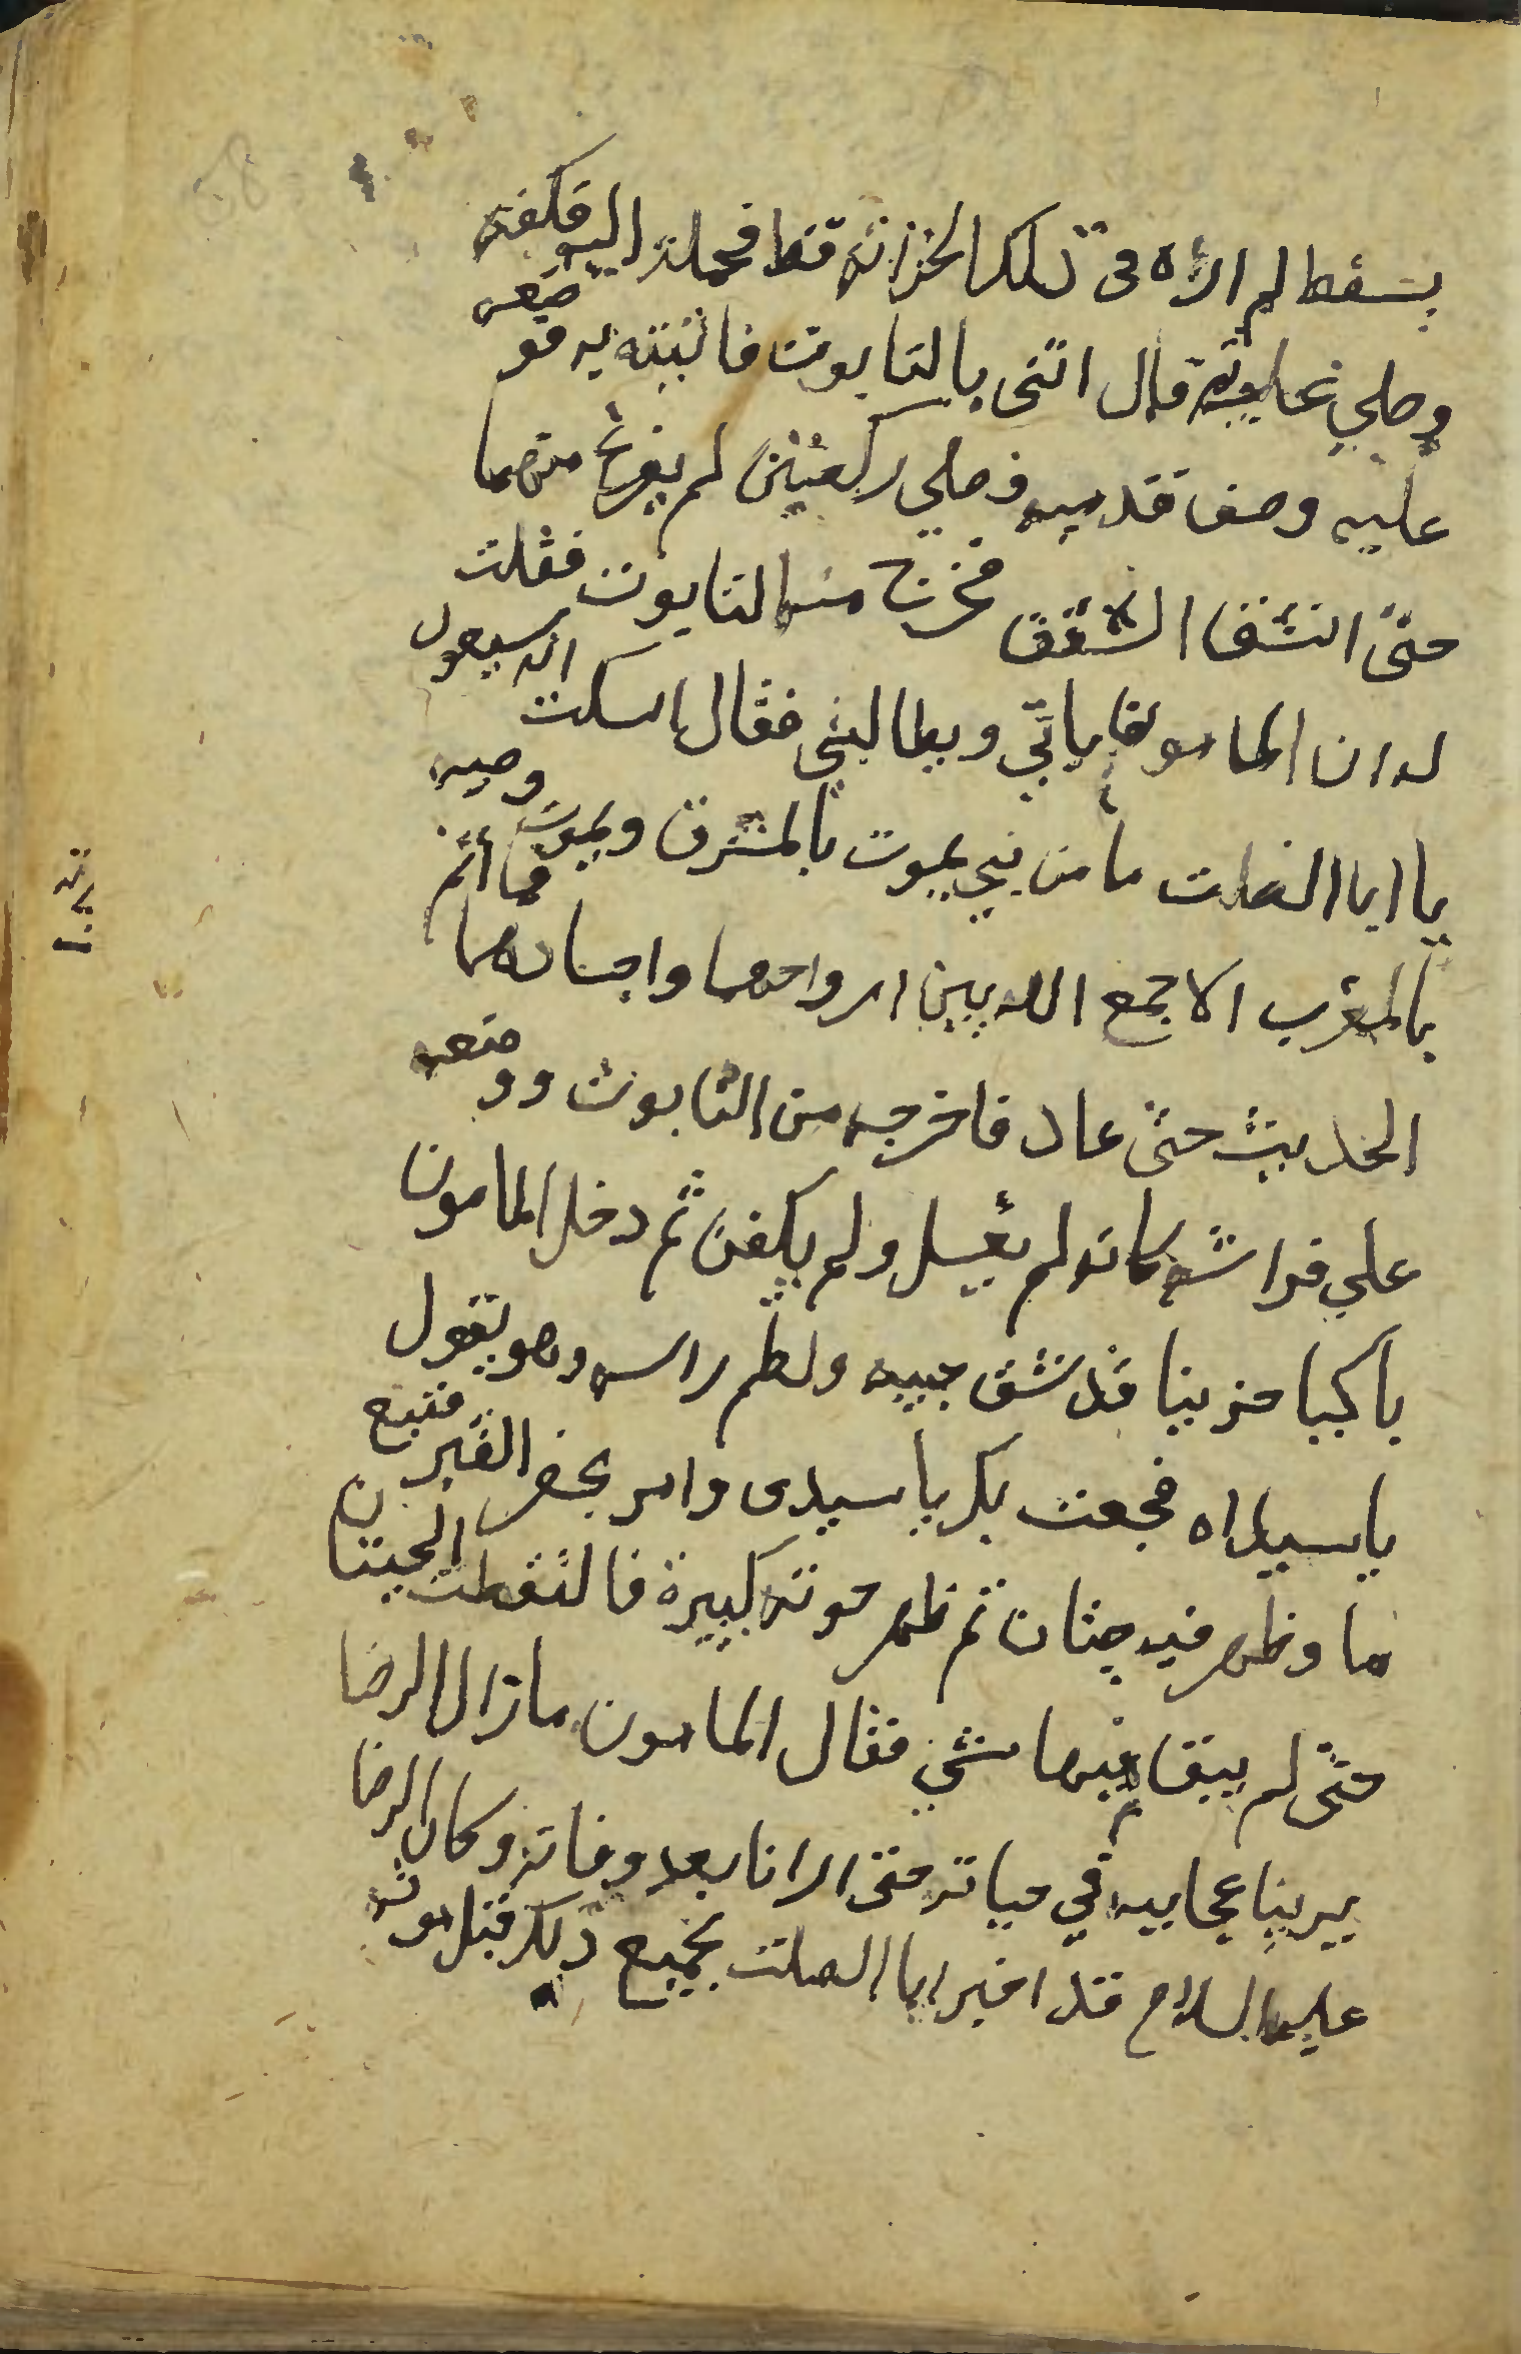 بسفط لم اراه في تلك الخزانة قط فحملته اليه فكفنه
وصلي عليه ثم قال ائتني بالتابوت فاتيته به فوضعه
عليه وصف قدميه وصلي ركعتين لم يفرغ منهما
حتي انشق السقف فخرج منه التابوت فقلت
له ان المامون ياتي ويطالبني فقال اسكت انه سيعود
يا ابا الصلت ما من نبي يموت بالمشرق ويموت وصيه
بالمغرب الا جمع الله بين ارواحهما واجسادهما فما اتم
الحديث حتي عاد فاخرجه من التابوت ووضعه
علي فراشه كانه لم يغسل ولم يكفن ثم دخل المامون
باكيا حزينا قد شق جيبه ولطم راسه وهو يقول
يا سيداه فجعت بك يا سيدي وامر بحفر القبر فنبع
ما وظهر فيه حيتان ثم ظهر حوتة كبيرة فالتقطت الحيتان
حتي لم يبقا فيها شي فقال المامون ما زال الرضا
يرينا عجايبه في حياته حتي ارانا بعد وفاته وكان الرضا
عليه السلام قد اخبر ابا الصلت بجميع ذلك قبل موته